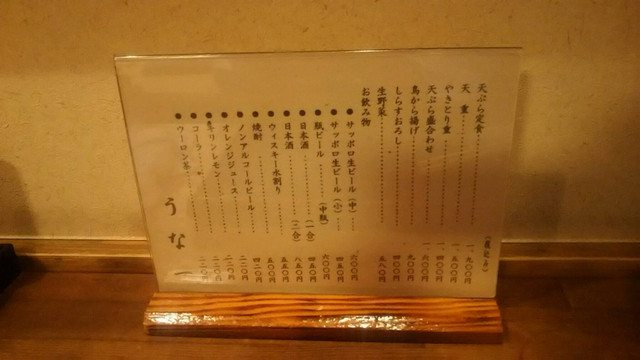 (税込み)
天ぷら定食………………一、九〇〇
天重………………一、五〇〇
やきとり重………………一、四〇〇
天ぷら盛合わせ………………一、六〇〇
鳥から揚げ………………九〇〇
しらすおろし………………四〇〇
生野菜………………五八〇
お飲み物
●サッポロ生ビール(中)…六〇〇
●サッポロ生ビール(小)…四五〇
●瓶ビール………(中瓶)六〇〇
●日本酒………(一合)四五〇
●日本酒………(二合)八五〇
●焼酎………………
●ウィスキー水割り………五〇〇
●ノンアルコールビール………四二〇
●オレンジジュース………二二〇
●キリンレモン………二二〇
●コーラ………二二〇
●ウーロン茶………二二〇
うな一